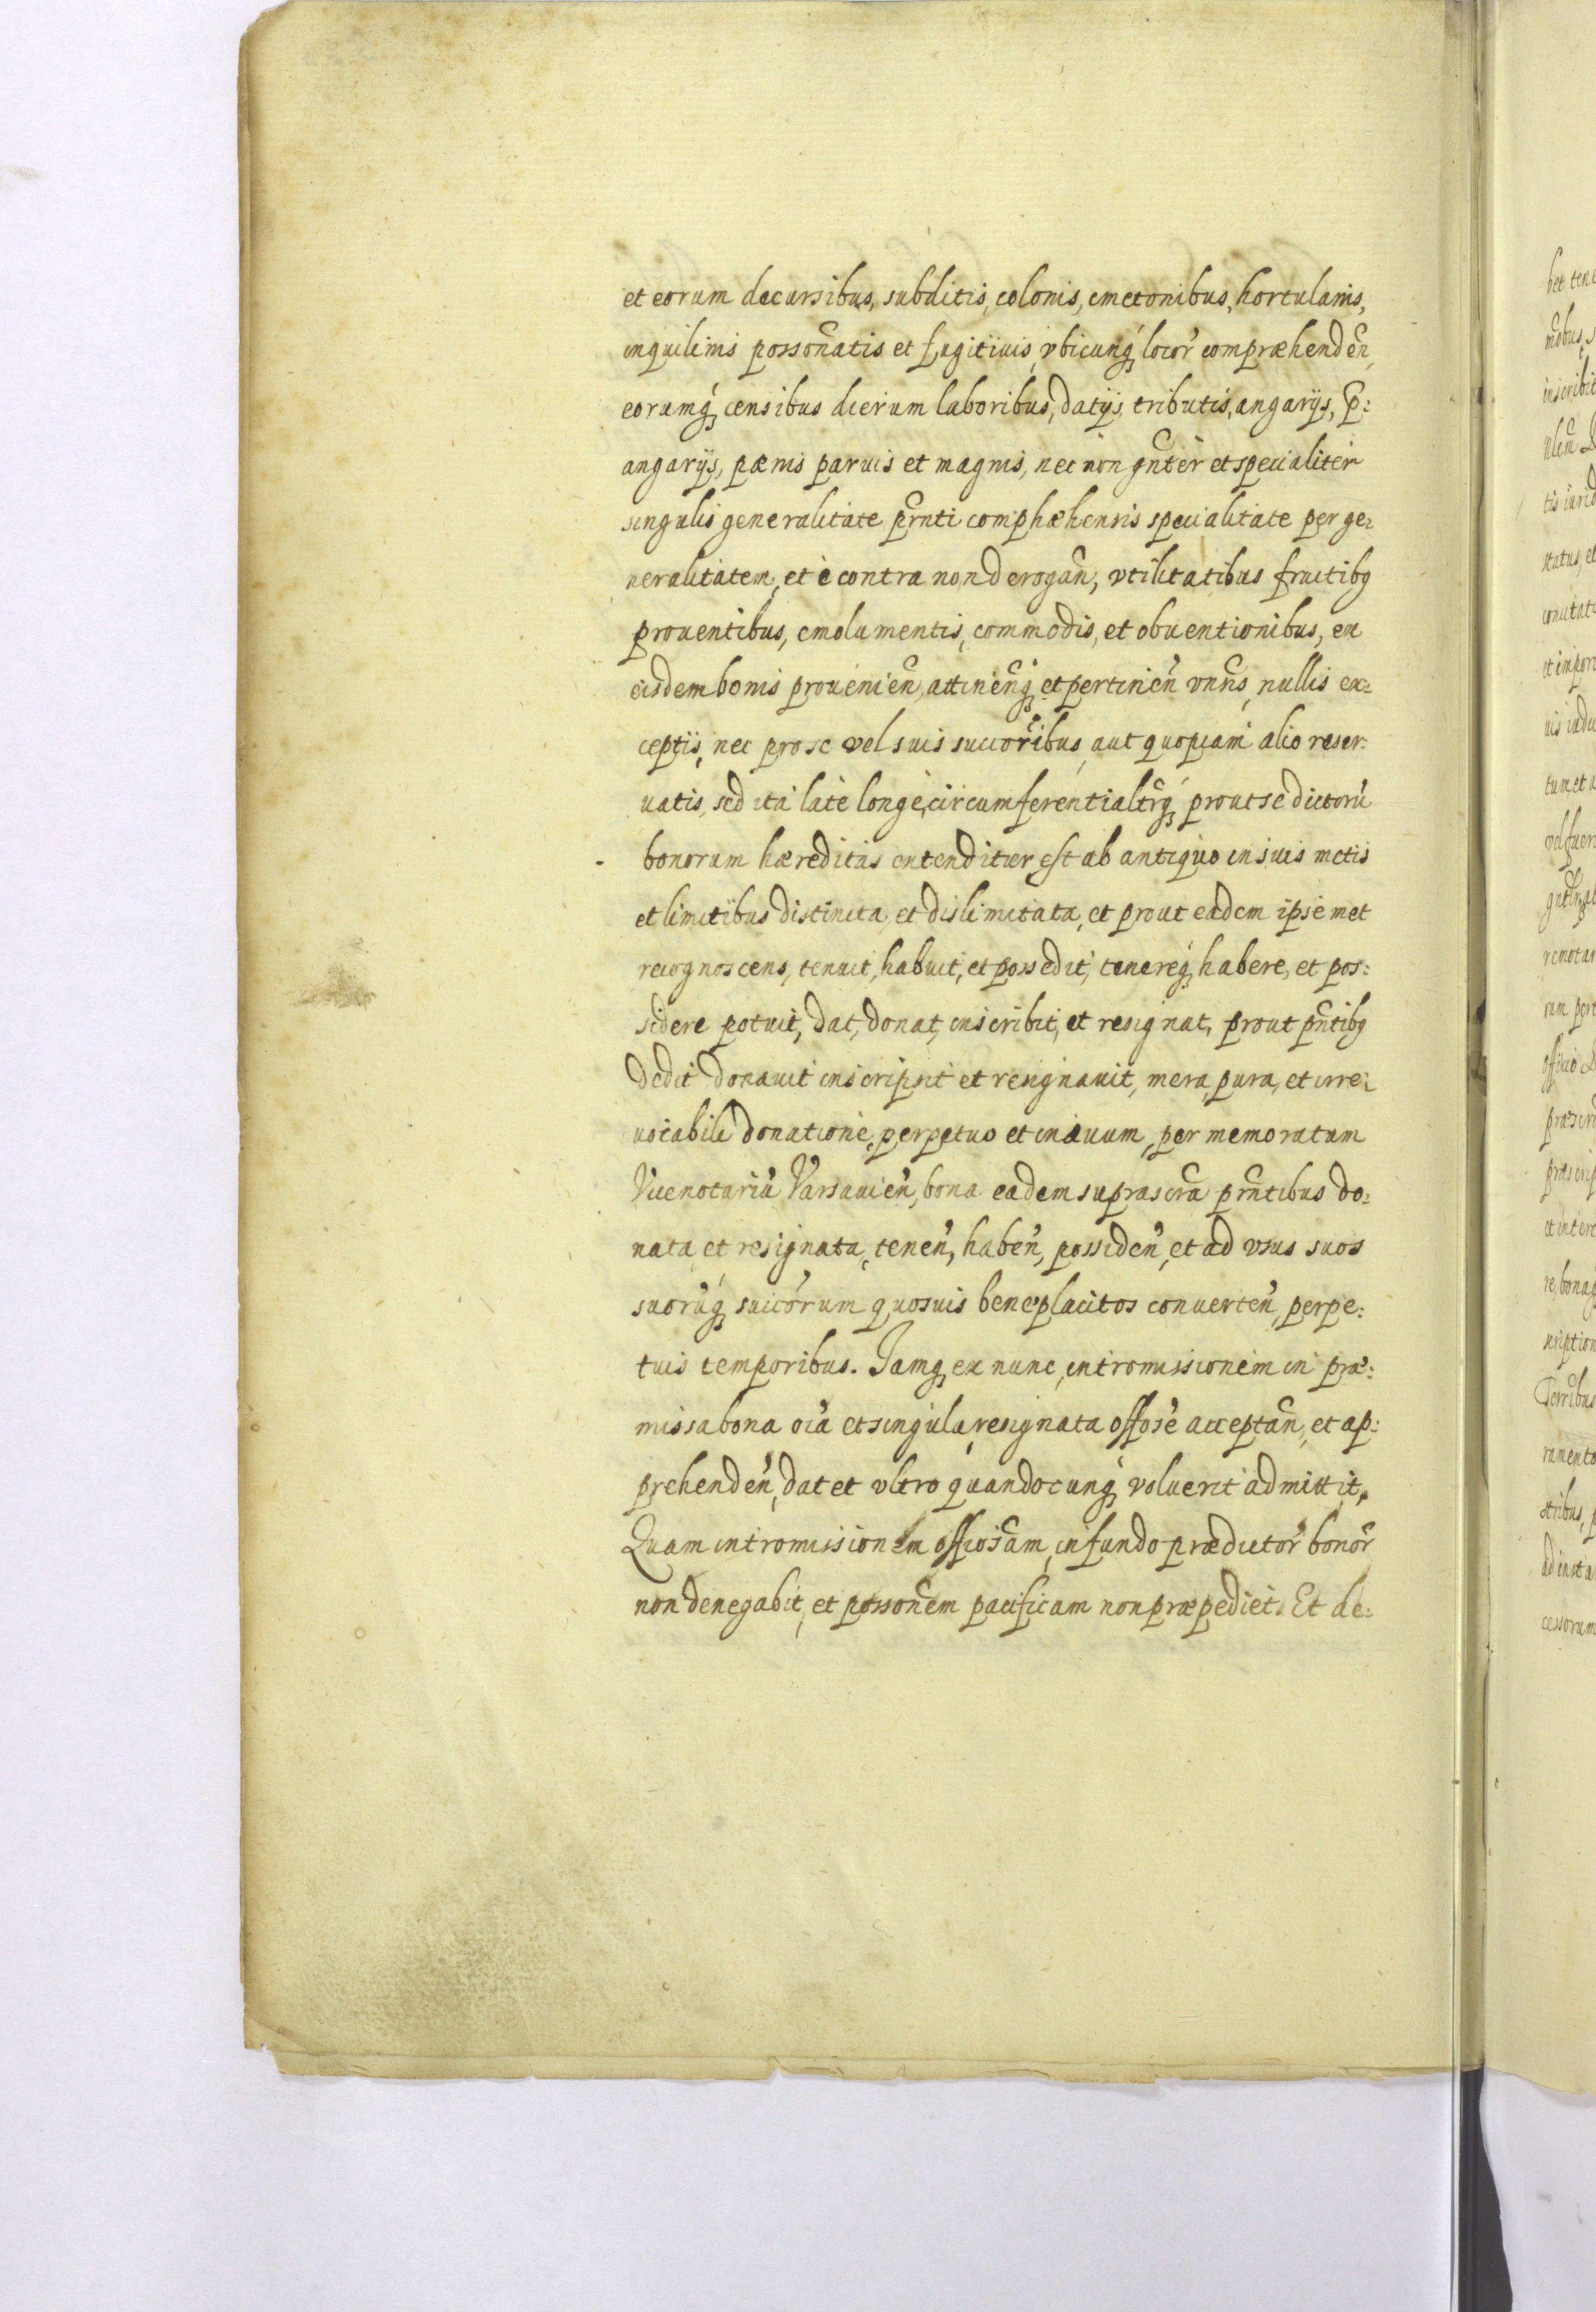 et eorum decursibus, subditis, colonis, cmetonibus, hortulanis,
inquilinis possonatis et fugitiuis, vbicunq locor compræhenden,
eorumq censibus dierum laboribus, datijs, tributis, angarijs, p:
angarijs, pænis paruis et magnis, nec non gnter et specialiter
singulis generalitate prnti comphæhensis specialitate per ge:
neralitatem, et è contra non derogan, vtilitatibus fructibq
prouentibus, emolumentis, commodis, et obuentionibus, ex
eisdem bonis prouenien, attinenq et pertinen vnns, nullis ex:
ceptis, nec pro se vel suis succoribus, aut quopiam alio reser:
uatis, sed ita late longè, circumferentialtrq prout se dictorũ
bonorum hæreditas extenditur est ab antiquo in suis metis
et limitibus distincta et dislimitata, et prout eadem ipsemet
recognoscens, tenuit, habuit, et possedit, tenereq habere, et pos:
sidere potuit, dat, donat, inscribit, et resignat, prout pntibq
dedit donauit inscripsit et resignauit, mera, pura, et irre:
uocabili donatione, perpetuo et in æuum, per memoratum
Vicenotariũ Varsauien, bona eadem suprascra prntibus do:
nata et resignata, tenen, haben, possiden, et ad vsus suos
suorũq succorum quosuis beneplacitos conuerten, perpe:
tuis temporibus. Iamq ex nunc, intromissionem in præ:
missa bona oia et singula, resignata offose acceptan, et ap:
prehenden, dat et vltro quandocunq voluerit admittit.
Quam intromissionem officiosam, in fundo prædictor bonor
non denegabit, et possonem pacificam non præpediet. Et de: